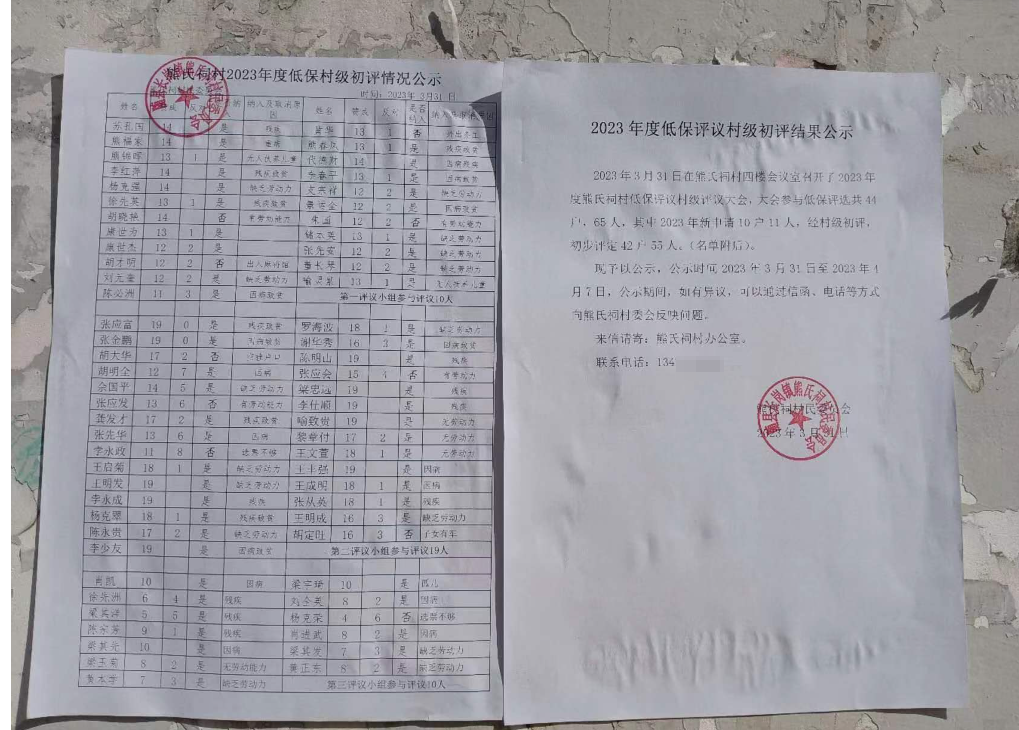 熊氏祠村2023年度低保村级初评情况公示
时间：2023年3月31日
姓名 赞成 反对 是否纳入 纳入及取消原因 姓名 赞成 反对 是否纳入 纳入及取消原因
14 是 残疾 13 1 否
熊福来 14 是 13 1 是 残疾致贫
13 1 是 14 是 因病残疾
李红萍 14 是 残疾致贫 李春平 13 1 是 因病致贫
杨克强 14 是 缺乏劳动力 12 2 是 缺乏劳动力
徐先英 13 1 是 残疾致贫 12 2 是 因病致贫
胡晓艳 14 否 有劳动能力 朱国 12 2 否 有劳动能力
詹世为 13 1 是 13 1 是 缺乏劳动力
詹世杰 12 2 是 张先实 12 2 是 缺乏劳动力
胡才明 12 2 否 12 2 是 缺乏劳动力
刘五奎 12 2 是 缺乏劳动力 13 1 是 无人扶养儿童
陈必洲 11 3 是 因病致贫 第一评议小组参与评议10人
张应富 19 0 是 残疾致贫 罗海波 18 1 是 缺乏劳动力
张金鹏 19 0 是 因病致贫 谢华秀 16 3 是 因病致贫
胡大华 17 2 否 陈明山 19 是 残疾
胡明全 12 7 是 因病 张应会 15 4 否 有劳动力
余国平 14 5 是 缺乏劳动力 梁忠远 19 是 残疾
张应发 13 6 否 有劳动能力 李仕顺 19 是 残疾
龚发才 17 2 是 残疾致贫 喻致贵 19 是 无劳力
张先华 13 6 是 因病 黎章付 17 2 是 无劳力
李永政 11 8 否 选票不够 王文萱 18 1 是 无劳力
王启菊 18 1 是 缺乏劳动力 王丰强 19 是 因病
王明发 19 是 缺乏劳动力 王成明 18 1 是 因病
李永成 19 是 残疾 张从英 18 1 是 残疾
杨克翠 18 1 是 残疾致贫 王明成 16 3 是 缺乏劳动力
陈永贵 17 2 是 缺乏劳动力 胡定旺 16 3 否 子女有车
李少友 19 是 因病致贫 第二评议小组参与评议19人
肖凯 10 是 因病 梁宇琦 10 是 孤儿
徐先洲 6 4 是 残疾 刘全英 8 2 是 因病
梁其洪 5 5 是 残疾 杨克荣 4 6 否 选票不够
陈宗芳 9 1 是 残疾 肖进武 8 2 是 因病
梁其光 10 是 因病 梁其发 7 3 是 缺乏劳动力
梁玉菊 8 2 是 无劳动能力 黄正东 8 2 是 缺乏劳动力
黄本学 7 3 是 缺乏劳动力 第三评议小组参与评议10人
2023年度低保评议村级初评结果公示
2023年3月31日在熊氏祠村四楼会议室召开了2023年
度熊氏祠村低保评议村级评议大会，大会参与低保评选共44
户，65人，其中2023年新申请10户11人，经村级初评，
初步评定42户55人。（名单附后）。
现予以公示，公示时间2023年3月31日至2023年4
月7日，公示期间，如有异议，可以通过信函、电话等方式
向熊氏祠村委会反映问题。
来信请寄：熊氏祠村办公室。
联系电话：134
熊氏祠村民委员会
2023年3月31日